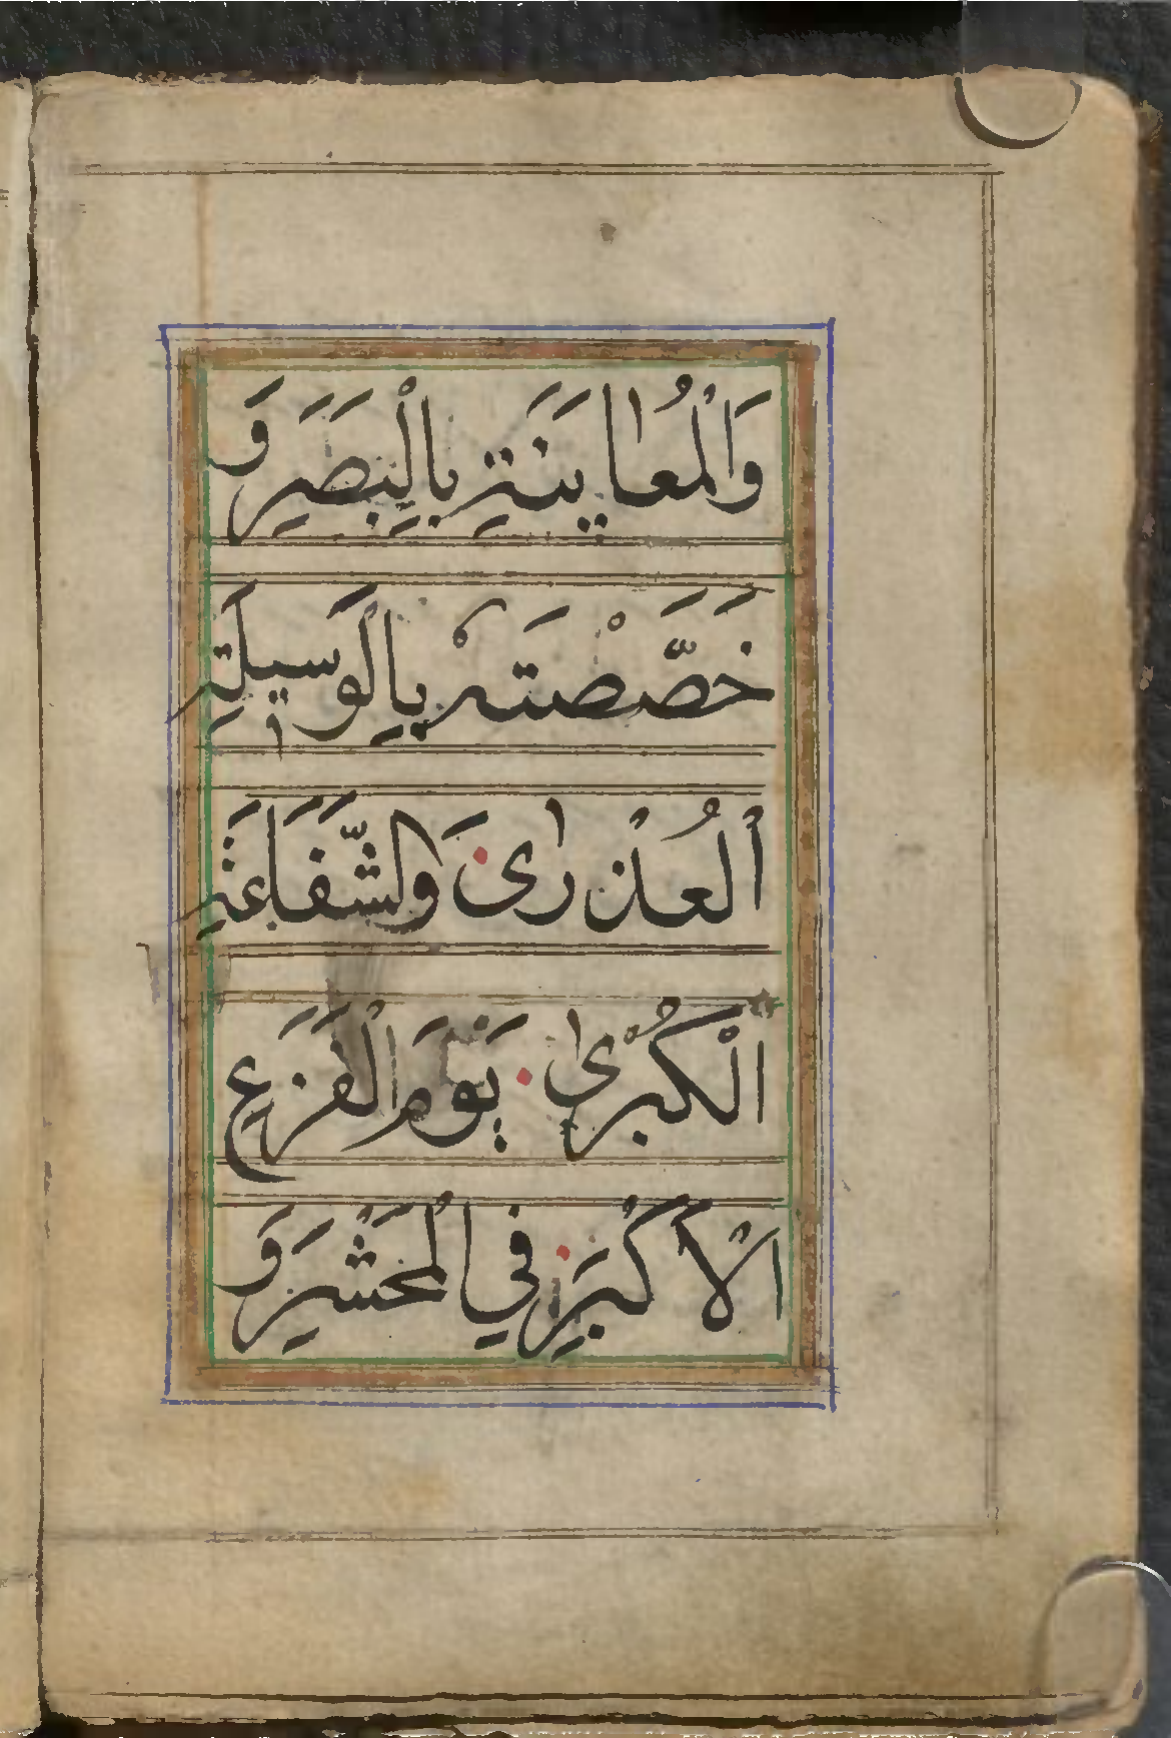 وَالْمُعٰايَنَةِ بِالْبَصَرِ وَ
خَصَّصْتَهُ بِالْوَسِيلَةِ
اَلْعُذْرٰىَ وَلشَّفَاعَةِ
الْكُبْرٰى يَوْمَ الْفَزَعِ
الْاَكْبَرِ فِي الْمَحْشَرِ وَ